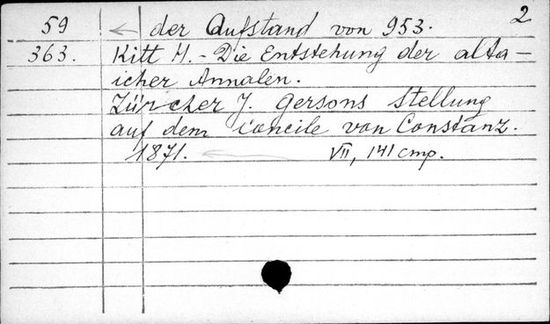 2
59 ← der Aufstand von 953.
363. Kitt H. - Die Entstehung der alta-
icher Annalen.
Zürcher J. Gersons Stellung
auf dem Concile von Constanz.
1871. ← VII, 141 стр.